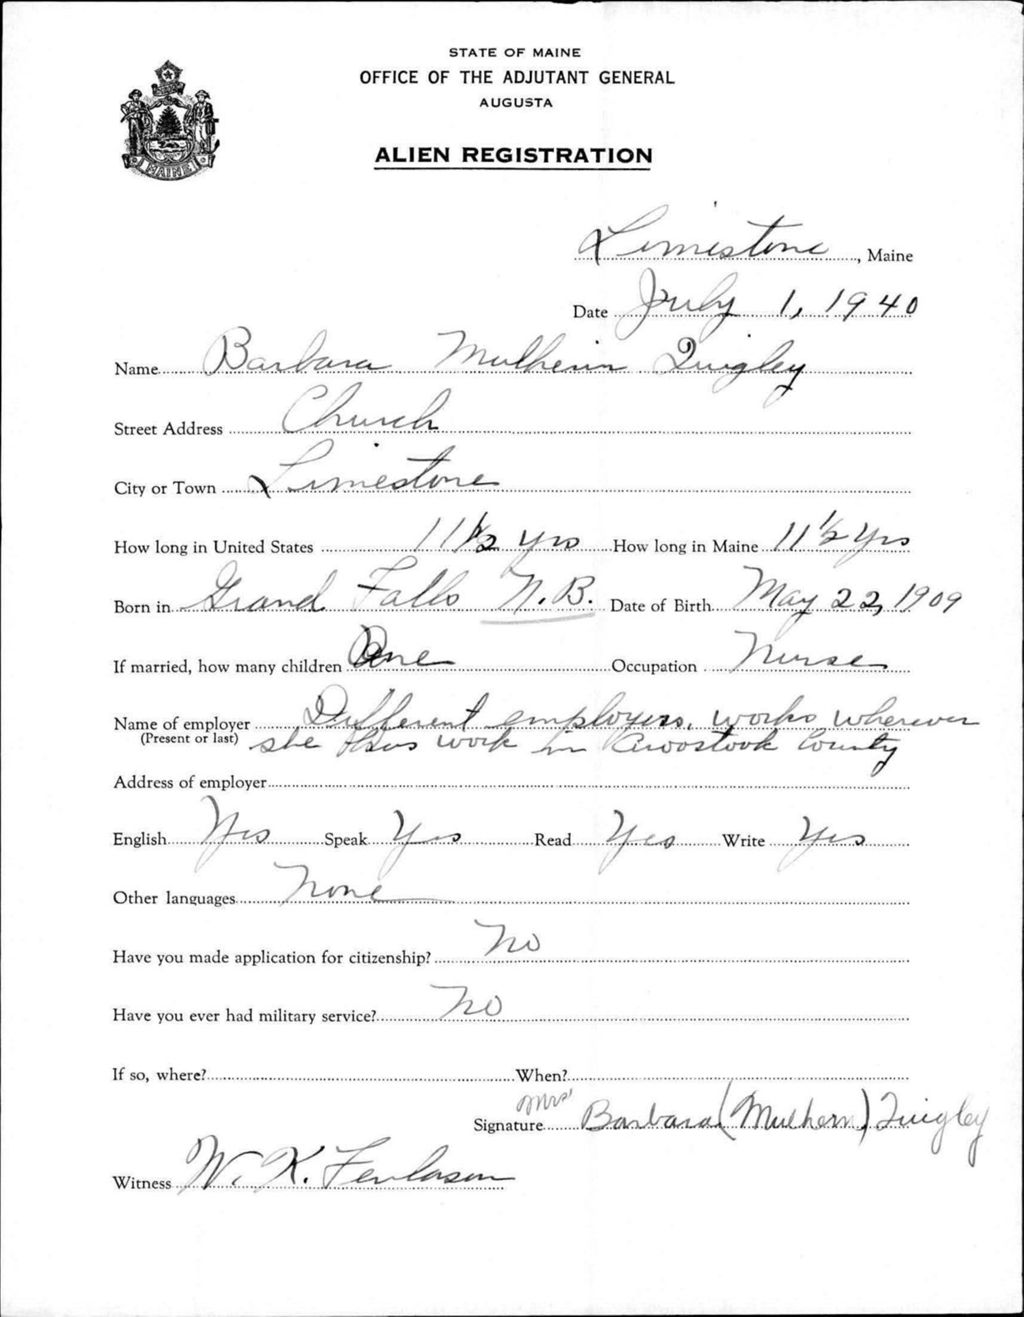 STATE OF MAINE
OFFICE OF THE ADJUTANT GENERAL
AUGUSTA
MAINE
ALIEN REGISTRATION
Limestone, Maine
Date July 1, 1940
Name Barbara Mulherin Quigley
Street Address Church
City or Town Limestone
How long in United States 11 1/2 yrs How long in Maine 11 1/2 Yrs
Born in Grand Falls N.B. Date of Birth May 22, 1909
If married, how many children One Occupation Nurse
Name of employer Different employers, works wherever
(Present or last) she has work in Aroostook County
Address of employer
English Yes Speak Yes Read Yes Write Yes
Other languages None
Have you made application for citizenship? No
Have you ever had military service? No
If so, where? When?
Mrs
Signature Barbara (Mulhern) Quigley
Witness W. K.